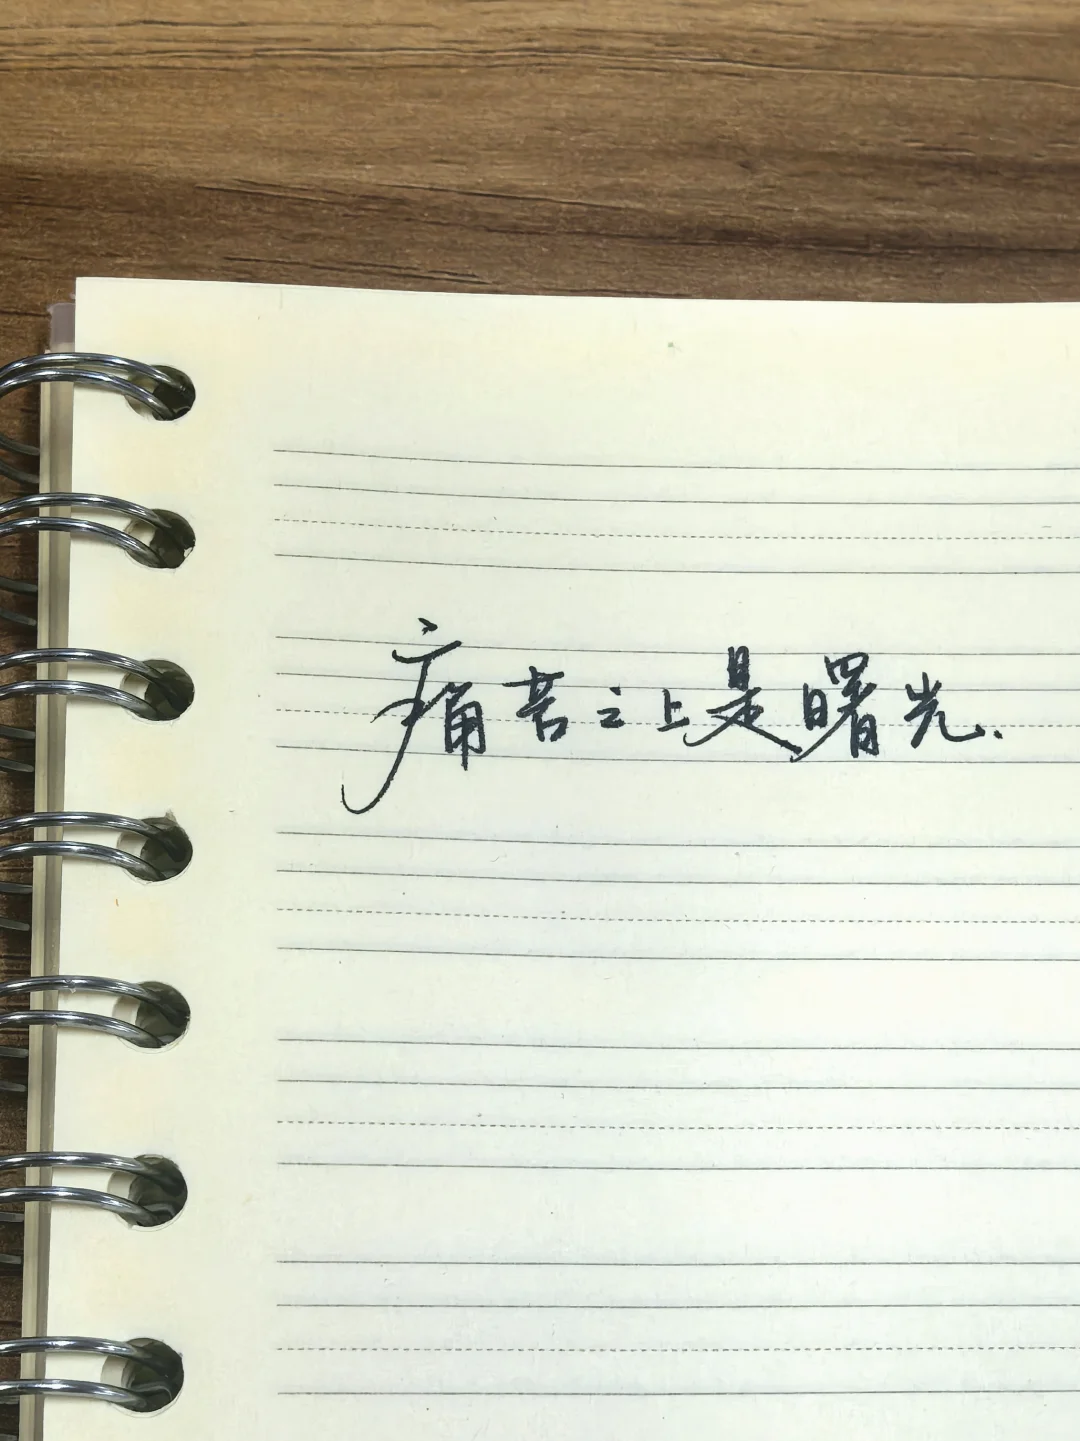 痛苦之上是曙光.